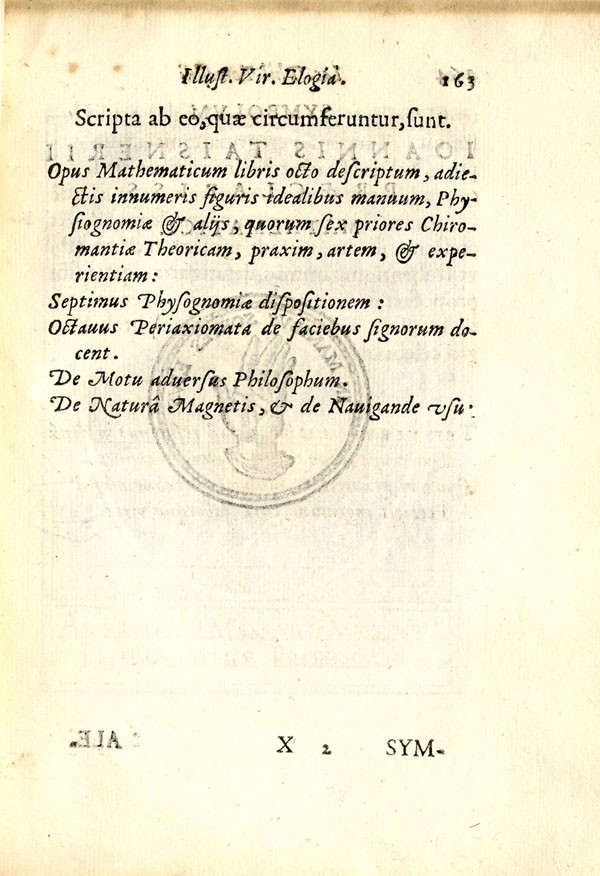 Illust. Vir. Elogia. 163
Scripta ab eo, quæ circumferuntur, sunt.
Opus Mathematicum libris octo descriptum, adie-
ctis innumeris figuris idealibus manuum, Phy-
siognomiæ & alijs, quorum sex priores Chiro-
mantiæ Theoricam, praxim, artem, & expe-
rientiam:
Septimus Physognomiæ dispositionem:
Octauus Periaxiomata de faciebus signorum do-
cent.
De Motu aduersus Philosophum.
De Naturâ Magnetis, & de Nauigande vsu.
X 2 SYM-